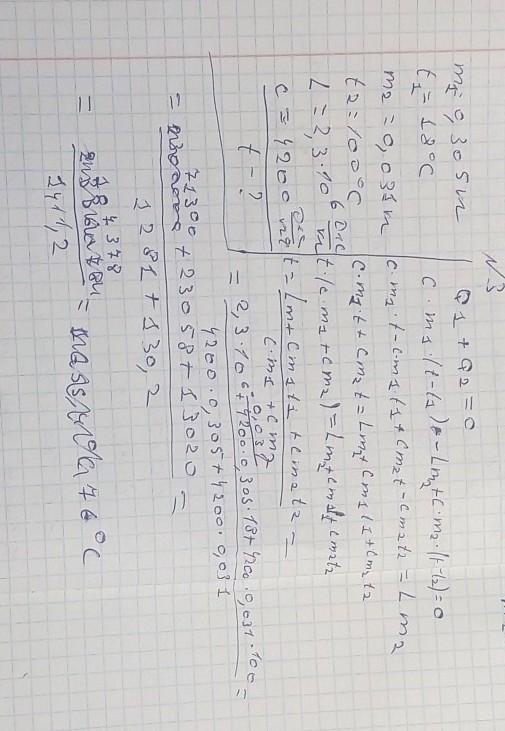 N3
m₁ = 0,305 кг
t₁ = 18°C
m₂ = 0,031 кг
t₂ = 100°C
L = 2,3·10⁶ Дж/кг
c = 4200 Дж/кг°C
t - ?
Q1 + Q2 = 0
c·m₁·(t-t₁) - Lm₂ + c·m₂·(t-t₂) = 0
c·m₁·t - cm₁t₁ + cm₂t - cm₂t₂ = Lm₂
c·m₁·t + cm₂t = Lm₂ + cm₁t₁ + cm₂t₂
t·(c·m₁ + cm₂) = Lm₂ + cm₁t₁ + cm₂t₂
t = Lm + cm₁t₁ + cm₂t₂ / c·m₁ + cm₂ =
= 2,3·10⁶·0,031 + 4200·0,305·18 + 4200·0,031·100 / 4200·0,305 + 4200·0,031 =
= 71300 + 23058 + 13020 / 1281 + 130,2 =
= 107378 / 1411,2 = 76°C